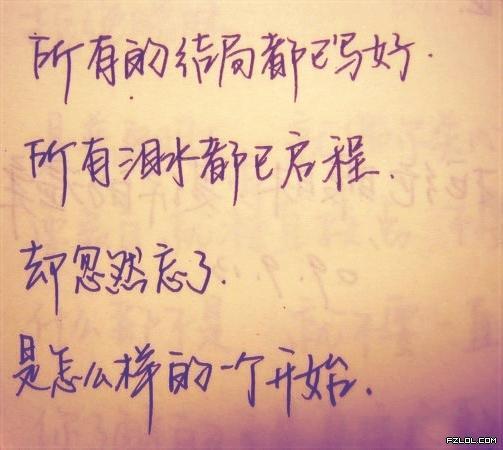 所有的结局都已写好.
所有泪水都已启程.
却忽然忘了.
是怎么样的一个开始.
FZLOL.COM